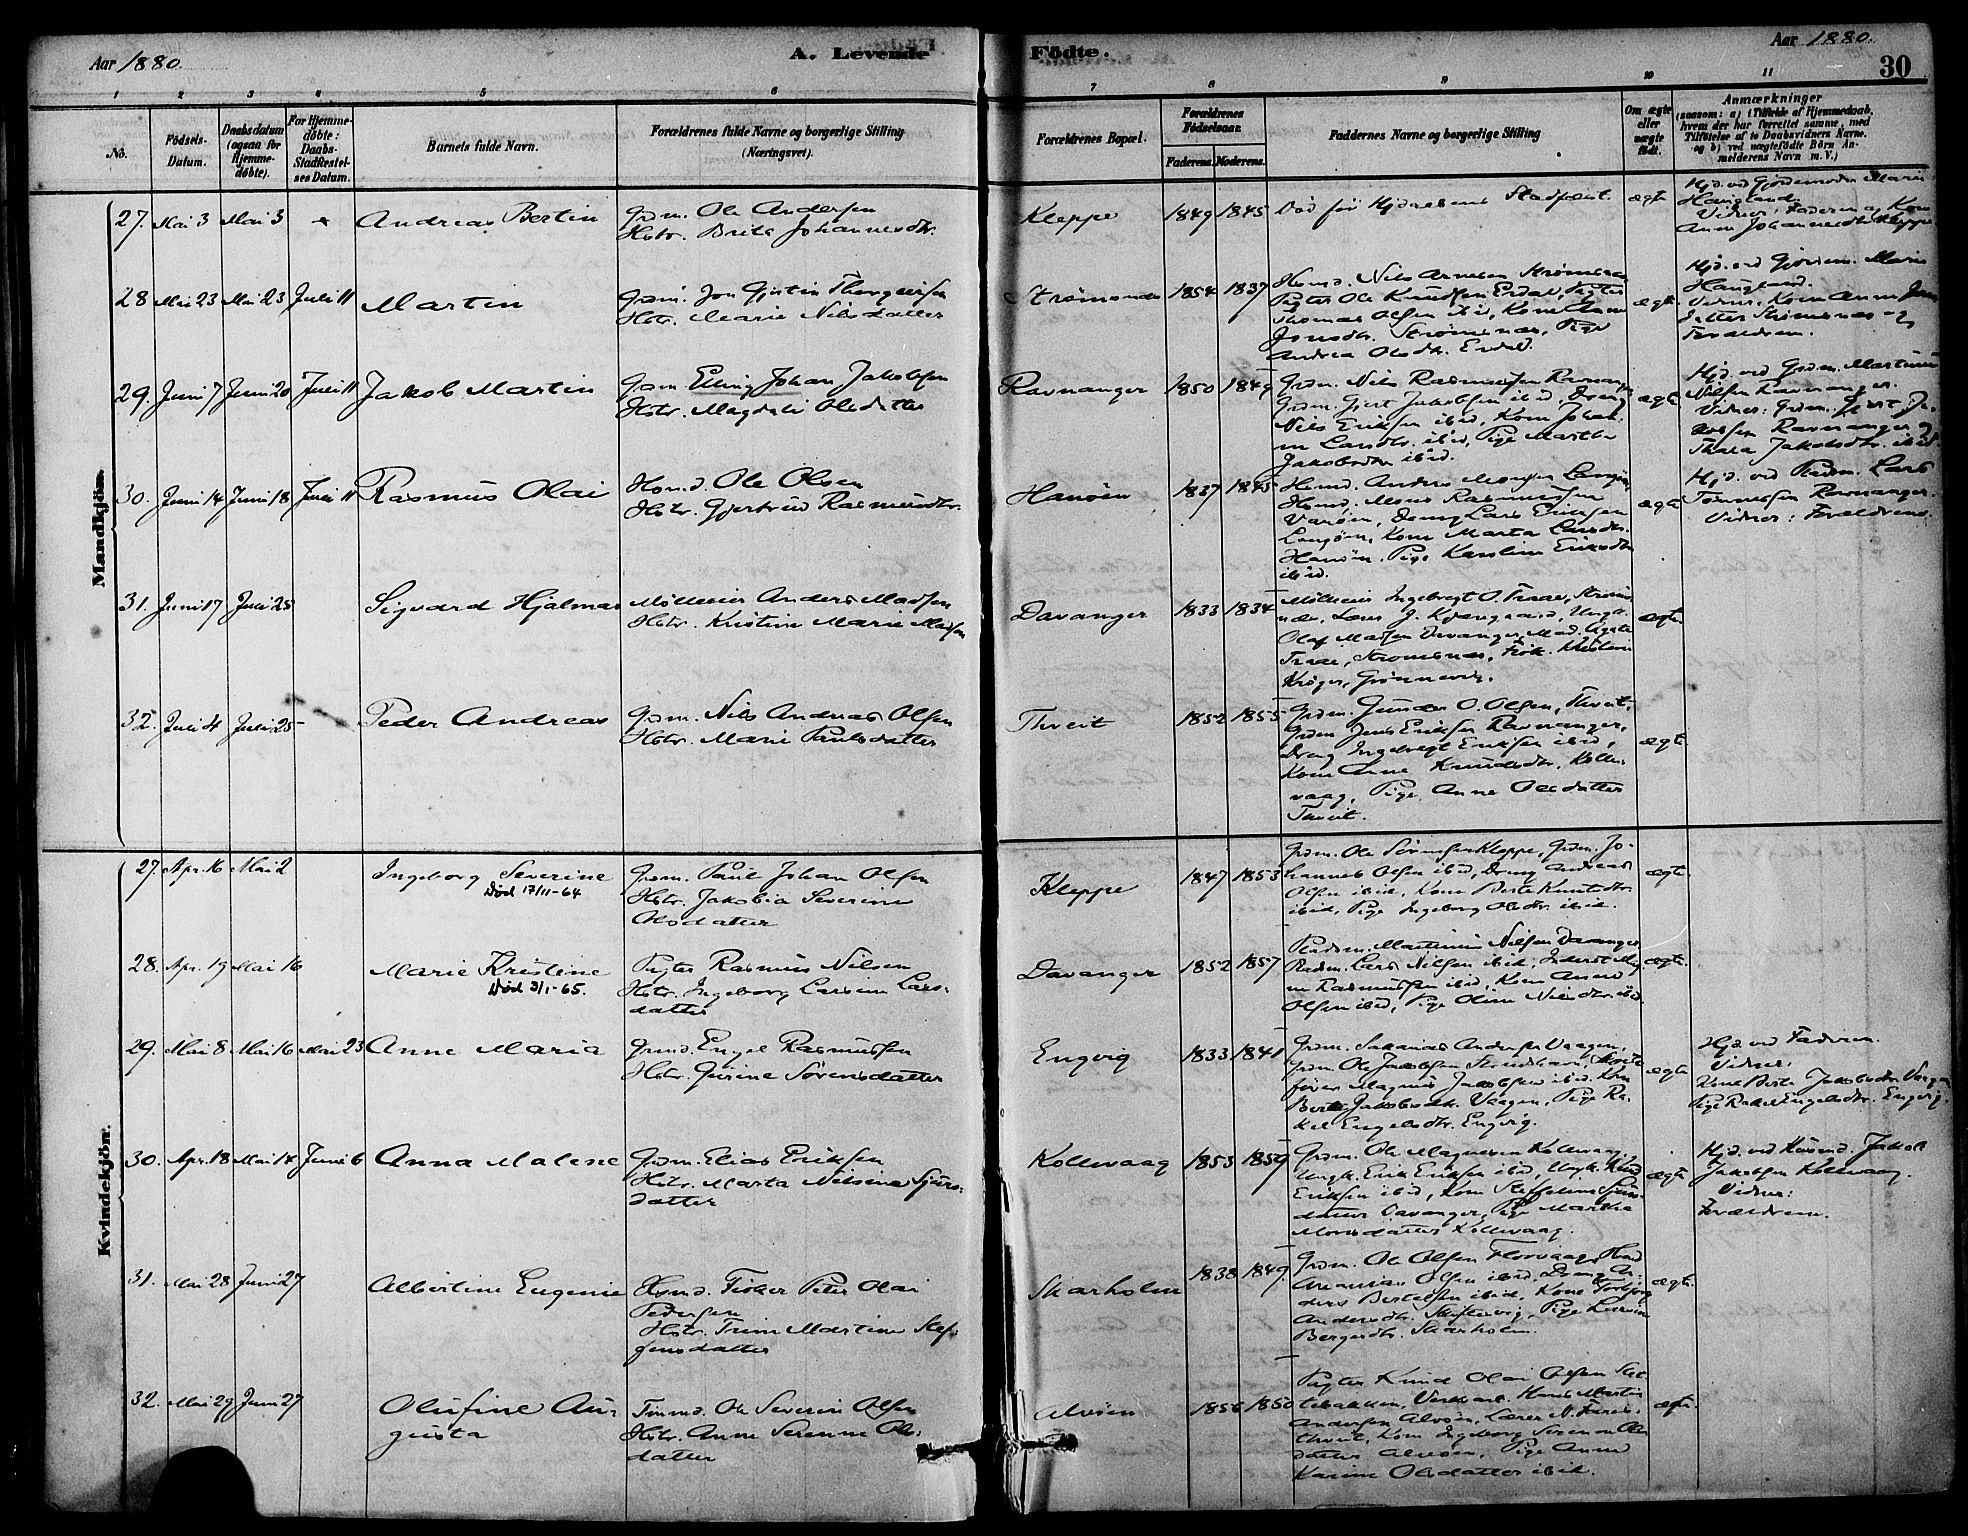 Aar 1880.
A. Levende
Födte.
Aar 1880.
30
1 2 3 4 5 6 7 8 9 10 11
No.
Födsels-
Datum.
Daabsdatum
(ogsaa for
Hjemme-
döbte).
For Hjemme-
döbte:
Daabs-
Stadfæstel-
ses Datum.
Barnets fulde Navn.
Forældrenes fulde Navne og borgerlige Stilling
(Næringsvei).
Forældrenes Bopæl.
Forældrenes
Födselsaar.
Faderens. Moderens.
Faddernes Navne og borgerlige Stilling
Om ægte
eller
uægte
födt.
Anmærkninger
(saasom: a) i Tilfælde af Hjemmedaab,
hvem der har forrettet samme, med
Tilföielse af to Daabsvidners Navne.
og b) ved uægtefödte Börn An-
melderens Navn m. V.)
Mandkjön.
27. Mai 3 Mai 3
Andreas Bertin
Grdm. Ole Andersen
Hstr. Brita Johannesdtr.
Kleppe
1849 1845
Død før Hjdaabens Stadfæst.
ægte
Hjd. ved Gjordemoder Marie
Haugland.
Vidner: Faderen og Kone
Anna Johannesdtr Kleppe.
28 Mai 23 Mai 23 Juli 11
Martin
Grdm. Jon Gjertin Thorgersen
Hstr. Marie Nilsdatter
Strømsnes
1854 1837
Husmd. Nils Arnesen Strømsnes
Pagter Ole Knudsen Erdal, Pagter
Thomas Olsen ibid, Kone Anna
Jonsdtr. Strømsnæs, Pige
Andrea Olsdtr. Erdal.
ægte
Hjd. ved Gjordem. Marie
Haugland.
Vidner: Kone Anna Jons
datter Strømsnæs og
Forældrene.
29. Juni 7 Juni 20 Juli 11
Jakob Martin
Grdm Elling Johan Jakobsen
Hstr. Magdali Olsdatter
Ravnanger
1850 1849
Grdm. Nils Rasmussen Ravnanger
Grdm. Gjert Jakobsen ibid, Dreng
Nils Eriksen ibid, Kone Johan
na Larsdtr. ibid, Pige Martha
Jakobsdtr ibid.
ægte
Hjd. ved Grdm. Martinus
Nilsen Ravnanger.
Vidner: Grdm. Gjert Ja-
kobsen Ravnanger og
Thala Jakobsdtr. ibid.
30. Juni 14 Juni 18 Juli 11
Rasmus Olai
Hsmd. Ole Olsen
Hstr. Gjertrud Rasmusdtr.
Hanøen
1837 1845
Husmd. Anders Monsen Langøen
Husmd. Mons Rasmussen
Varøen, Dreng Lars Eriksen
Langøen, Kone Marta Larsdtr.
Hanøen, Pige Karoline Eriksdtr
ibid.
ægte
Hjd. ved Pladsm. Lars
Tommesen Ravnanger.
Vidner: Forældrene.
31. Juni 17 Juli 25
Sigvard Hjalmar
Mølleeier Anders Madsen
Hstr. Kristine Marie Madsen
Davanger
1833 1834
Mølleeier Ingebregt O. Traae, Strøms-
næs, Lærer J. Kjæregaard, Ungk.
Olaf Madsen Davanger, Mad. Agate
Traae, Strømsnæs, Frøk. Kristine
Krøger, Grønnevig.
ægte
32. Juli 4 Juli 25
Peder Andreas
Grdm. Nils Andreas Olsen
Hstr. Marie Paulsdatter
Thveit
1852 1855
Grdm. Gunder O. Olsen, Thveit,
Grdm Jens Eriksen Ravnanger,
Dreng Ingebregt Eriksen ibid,
Kone Anne Knudsdtr, Kolle-
vaag, Pige Anne Olsdatter
Thveit.
ægte
Kvindekjön.
27. Apr. 16 Mai 2
Ingeborg Severine
Død 17/11-64
Grdm. Paul Johan Olsen
Hstr. Jakobia Severine
Olsdatter
Kleppe
1847 1853
Grdm. Ole Sørensen Kleppe, Grdm. Jo-
hannes Olsen ibid, Dreng Andreas
Olsen ibid, Kone Berte Knutsdtr
ibid, Pige Ingeborg Olsdtr. ibid.
ægte
28. Apr. 19 Mai 16
Marie Kristine
Død 3/1-65.
Pagter Rasmus Nilsen
Hstr. Ingeborg Larsine Lars-
datter
Davanger
1852 1857
Pladsm. Martinus Nilsen Davanger
Pladsm. Lars Nilsen ibid, Inderst Mag
nus Rasmussen ibid, Kone Anne
Olsen ibid, Pige Oline Nilsdtr. ibid.
ægte
29. Mai 8 Mai 16 Mai 23
Anne Maria
Grmd. Engel Rasmussen
Hstr. Gurine Sørensdatter
Engvig
1833 1841
Grdm. Johannes Andersen Vaagen,
Grdm. Ole Jakobsen Strandhavn, Skoite
fører Magnus Jakobsen ibid. Kone
Berte Jakobsdtr. Vaagen, Pige Ra-
kel Engelsdtr. Engvig.
ægte
Hjd. ved Faderen.
Vidner:
Kone Berte Jakobsdtr. Vaagen
Pige Rakel Engelsdtr. Engvig.
30. Apr. 18 Mai 14 Juni 6
Anna Malene
Grdm. Elias Eriksen
Hstr. Marta Nilsine Sjurs-
datter
Kollevaag
1853 1859
Grdm. Ole Magnesen Kollevaag,
Ungk. Erik Eriksen ibid, Ungk. Knud
Eriksen ibid, Kone Steffeline Sjurs-
datter Davanger, Pige Martha
Monsdatter Kollevaag.
ægte
Hjd. ved Husmd. Jakob
Jakobsen Kollevaag.
Vidner:
Forældrene.
31. Mai 28 Juni 27
Albertine Eugenie
Husmd. Fisker Peter Olai
Pedersen
Hstr. Trine Martine Stef-
fensdatter
Skarholm
1838 1849
Grdm. Ole Olsen Florvaag, Husmd
Ananias Olsen ibid, Dreng An-
ders Bertelsen ibid, Kone Torbjørg
Andersdtr. Skiftesvig, Pige
Bergesdtr. Skarholm.
ægte
32. Mai 29 Juni 27
Olufine Au-
gusta
Tmmd. Ole Severin Olsen
Hstr. Anne Serenne Ols-
datter
Alvøen
1856 1850
Pagter Knud Olai Olsen Slet
tebakken, Verkarb. Hans Martin
Andersen Alvøen, Lærer N.
thveit, Kone Ingeborg Serenne Ols
datter Alvøen, Pige Anne
Karine Olsdatter ibid.
ægte